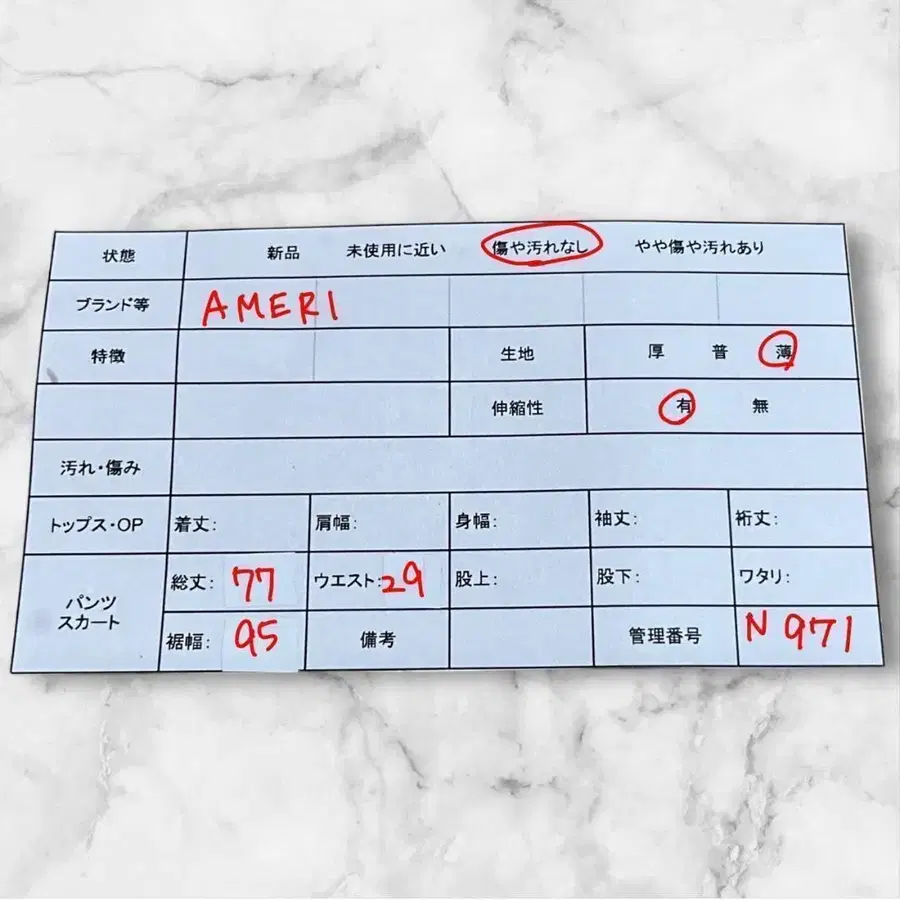 状態 新品 未使用に近い 傷や汚れなし やや傷や汚れあり
ブランド等 AMERI
特徴 生地 厚 普 薄
伸縮性 有 無
汚れ・傷み
トップス・OP 着丈: 肩幅: 身幅: 袖丈: 裄丈:
パンツ スカート 総丈: 77 ウエスト: 29 股上: 股下: ワタリ:
裾幅: 95 備考 管理番号 N 971